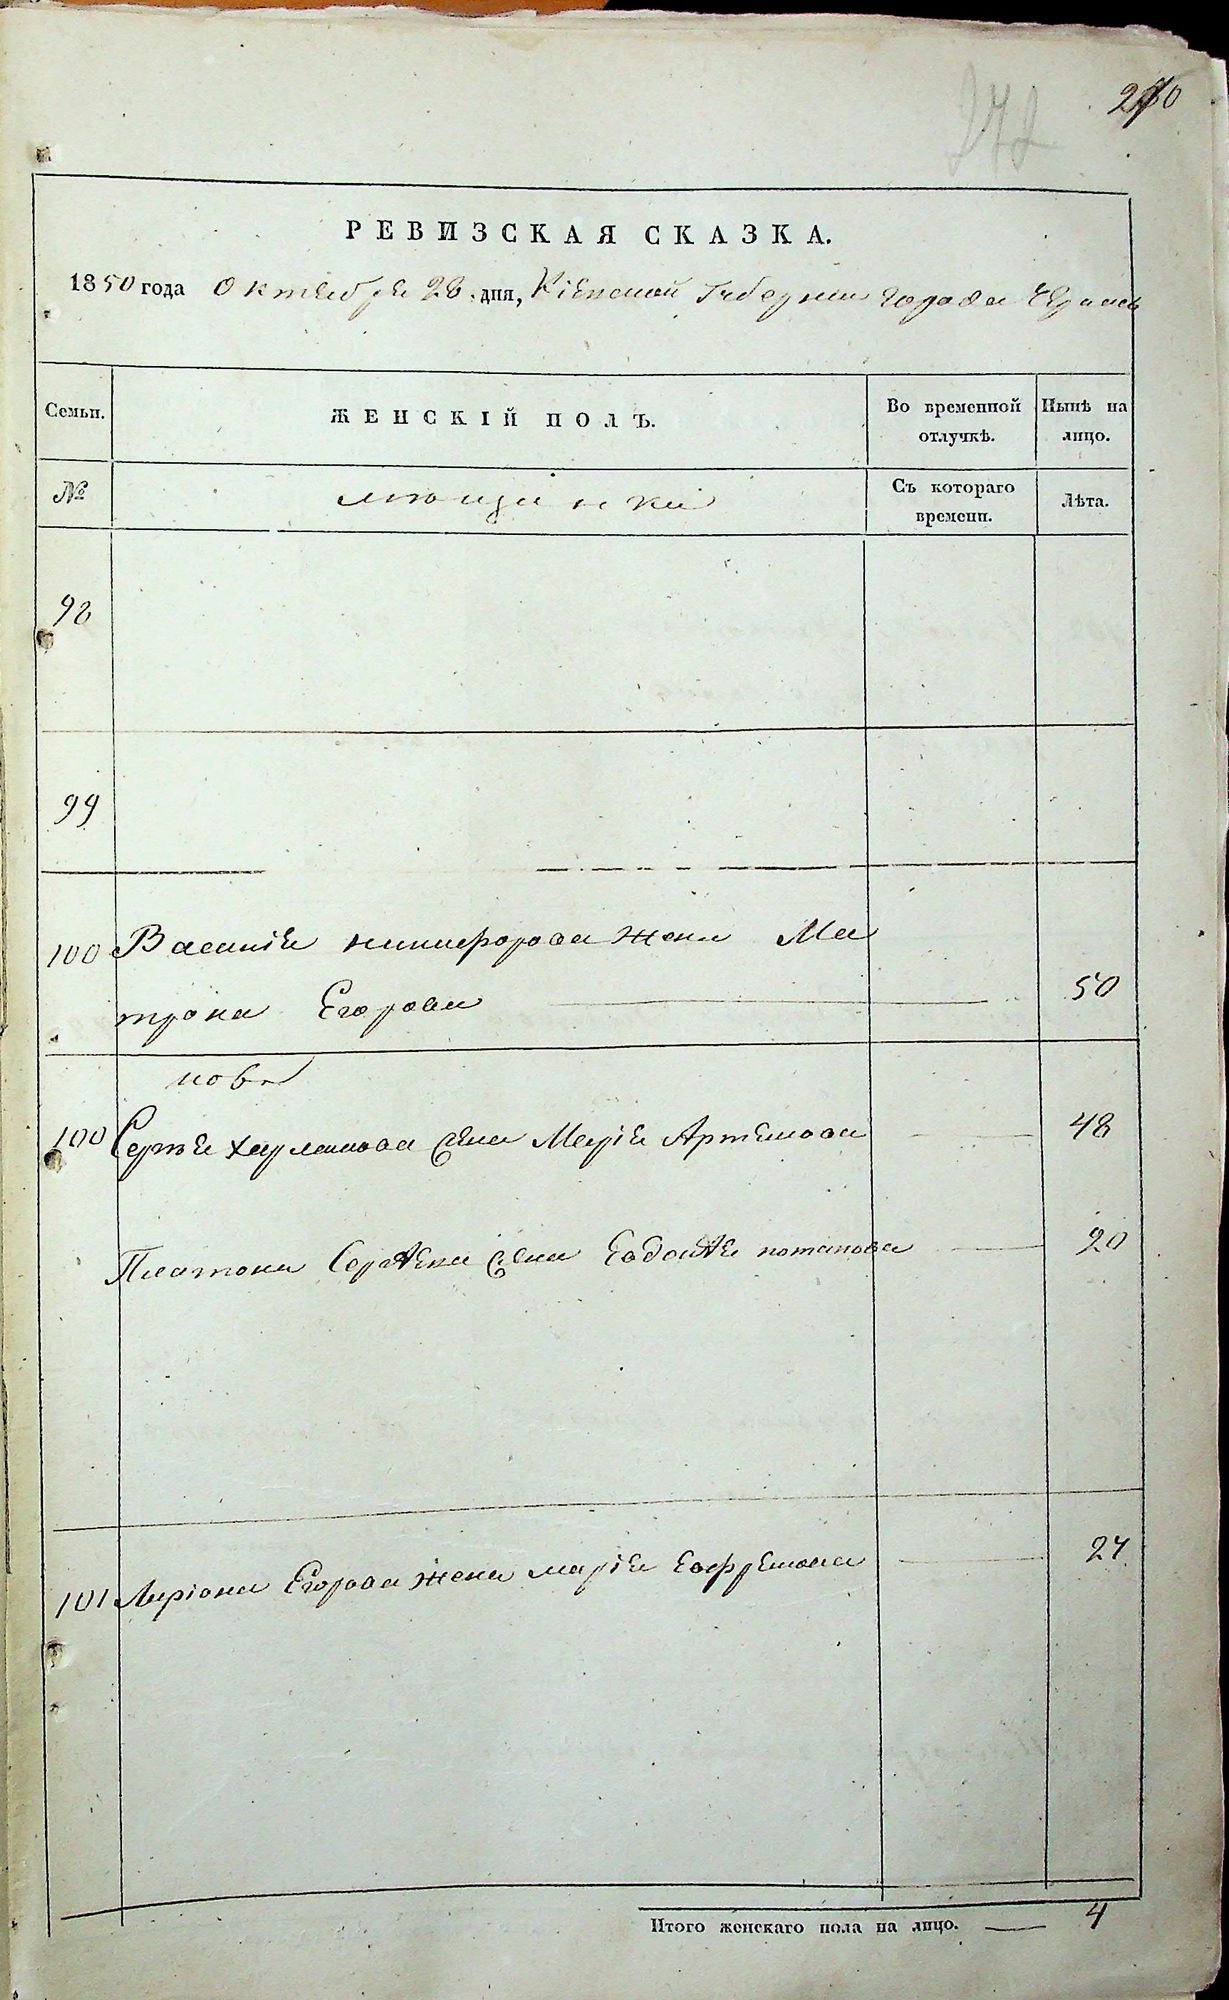 280
272
РЕВИЗСКАЯ СКАЗКА.
1850 года Октября 28 дня, Кіевской Губернии города Черкас
Семьи. ЖЕНСКІЙ ПОЛЪ. Во временной отлучкѣ. Нынѣ на лицо.
№ мещанки Съ котораго времени. Лѣта.
98
99
100 Василія никифорова жена Ма
трона Егорова 50
нова
100 Сергѣя харлампова жена Марія Артемова 48
Платона Сергѣева жена Евдокія потапова 20
101 Ларіона Егорова жена марія Ефремова 24
Итого женскаго пола на лицо. 4